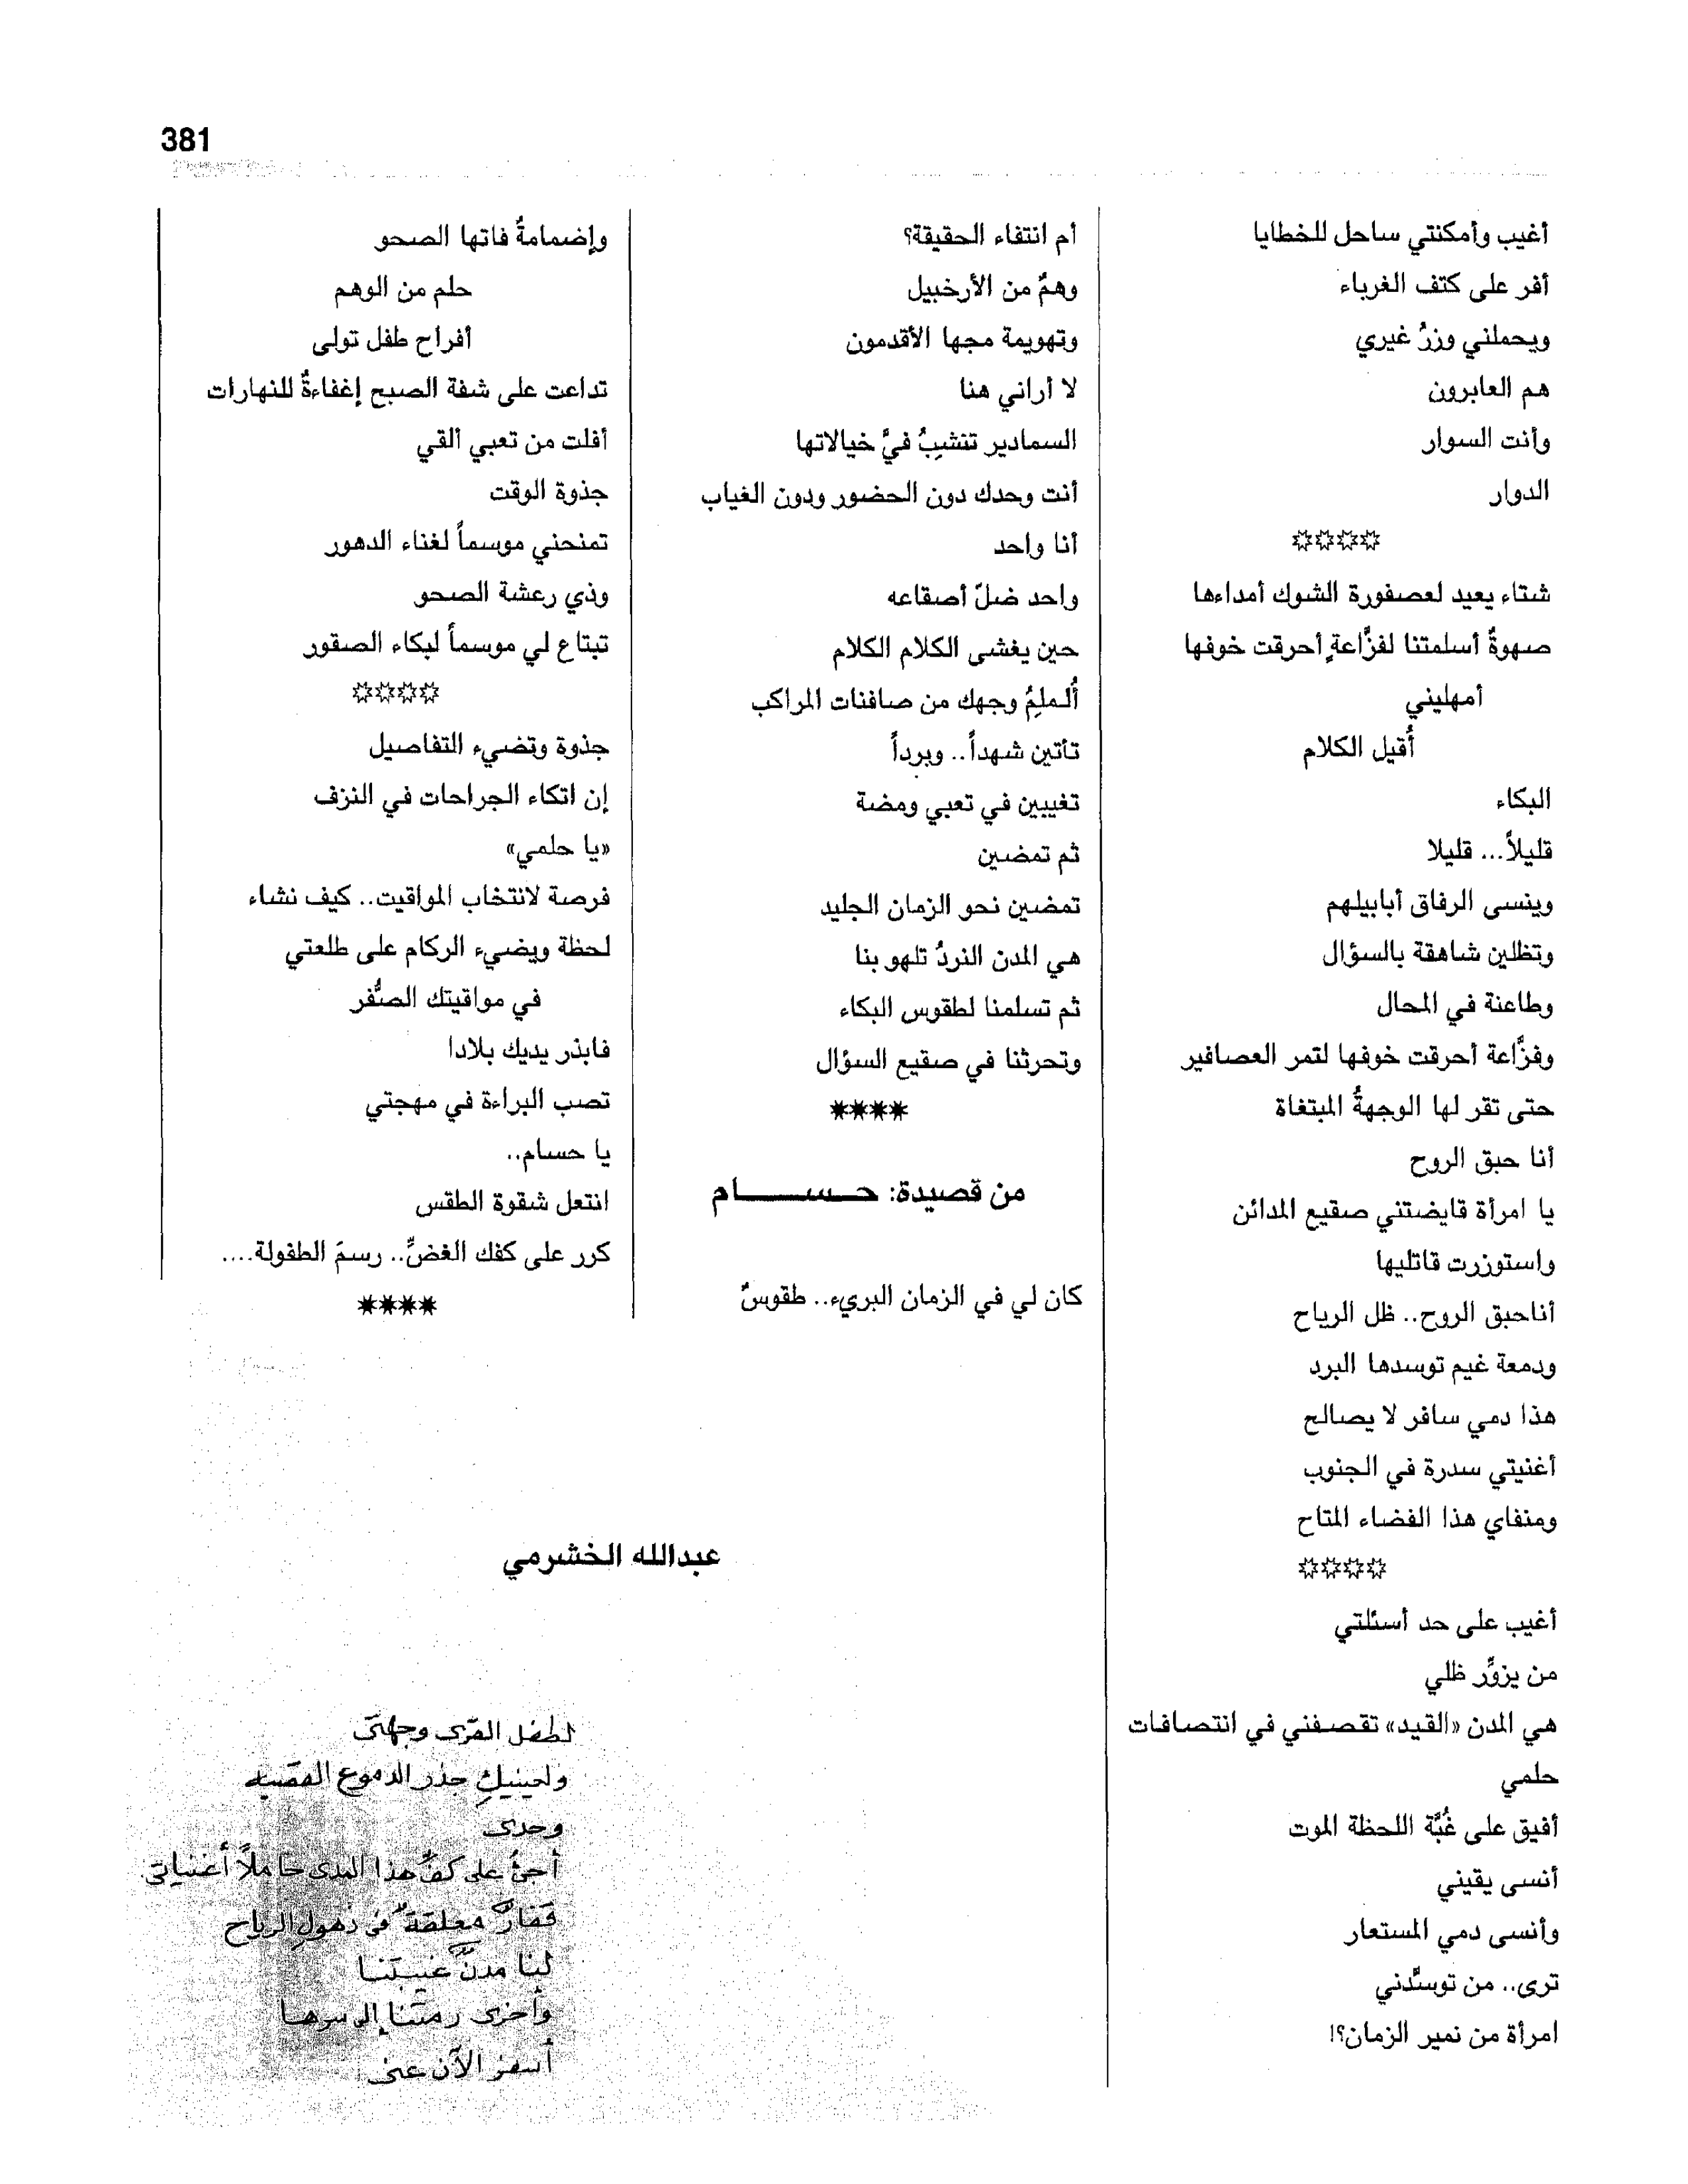 381
أغيب وأمكنتي ساحل للخطايا
أفر على كتف الغرباء
ويحملني وزرُ غيري
هم العابرون
وأنت السوار
الدوار
☼☼☼☼
شتاء يعيد لعصفورة الشوك أمداءها
صهوةٌ أسلمتنا لفزَّاعةٍ أحرقت خوفها
أمهليني
أُقيل الكلام
البكاء
قليلاً... قليلا
وينسى الرفاق أبابيلهم
وتظلين شاهقة بالسؤال
وطاعنة في المحال
وفزَّاعة أحرقت خوفها لتمر العصافير
حتى تقر لها الوجهةُ المبتغاة
أنا حبق الروح
يا امرأة قايضتني صقيع المدائن
واستوزرت قاتليها
أناحبق الروح.. ظل الرياح
ودمعة غيم توسدها البرد
هذا دمي سافر لا يصالح
أغنيتي سدرة في الجنوب
ومنفاي هذا الفضاء المتاح
☼☼☼☼
أغيب على حد أسئلتي
من يزوِّر ظلي
هي المدن «القيد» تقصفني في انتصافات
حلمي
أفيق على غُبَّة اللحظة الموت
أنسى يقيني
وأنسى دمي المستعار
ترى.. من توسَّدني
امرأة من نمير الزمان؟!
أم انتفاء الحقيقة؟
وهمٌ من الأرخبيل
وتهويمة مجها الأقدمون
لا أراني هنا
السمادير تنشبُ فيَّ خيالاتها
أنت وحدك دون الحضور ودون الغياب
أنا واحد
واحد ضلّ أصقاعه
حين يغشى الكلام الكلام
ألملمُ وجهك من صافنات المراكب
تأتين شهداً.. وبرداً
تغيبين في تعبي ومضة
ثم تمضين
تمضين نحو الزمان الجليد
هي المدن النردُ تلهو بنا
ثم تسلمنا لطقوس البكاء
وتحرثنا في صقيع السؤال
****
من قصيدة: حـــســـــــام
كان لي في الزمان البريء.. طقوسٌ
وإضمامةٌ فاتها الصحو
حلم من الوهم
أفراح طفل تولى
تداعت على شفة الصبح إغفاءةٌ للنهارات
أفلت من تعبي ألقي
جذوة الوقت
تمنحني موسماً لغناء الدهور
وذي رعشة الصحو
تبتاع لي موسماً لبكاء الصقور
☼☼☼☼
جذوة وتضيء التفاصيل
إن اتكاء الجراحات في النزف
«يا حلمي»
فرصة لانتخاب المواقيت.. كيف نشاء
لحظة ويضيء الركام على طلعتي
في مواقيتك الصُّفر
فابذر يديك بلادا
تصب البراءة في مهجتي
يا حسام..
انتعل شقوة الطقس
كرر على كفك الغضِّ.. رسمَ الطفولة....
****
عبدالله الخشرمي
لطفل القرى وجهتي
ولعينيكِ جذر الدموع القصيه
وحدي
أجئُ على كفِّ هذا المدى حاملاً أغنياتي
قفارٌ معلقةٌ في ذهولِ الرياح
لنا مدنٌ غيبتنا
وأخرى رمتنا إلى سرها
أسفر الآن عني